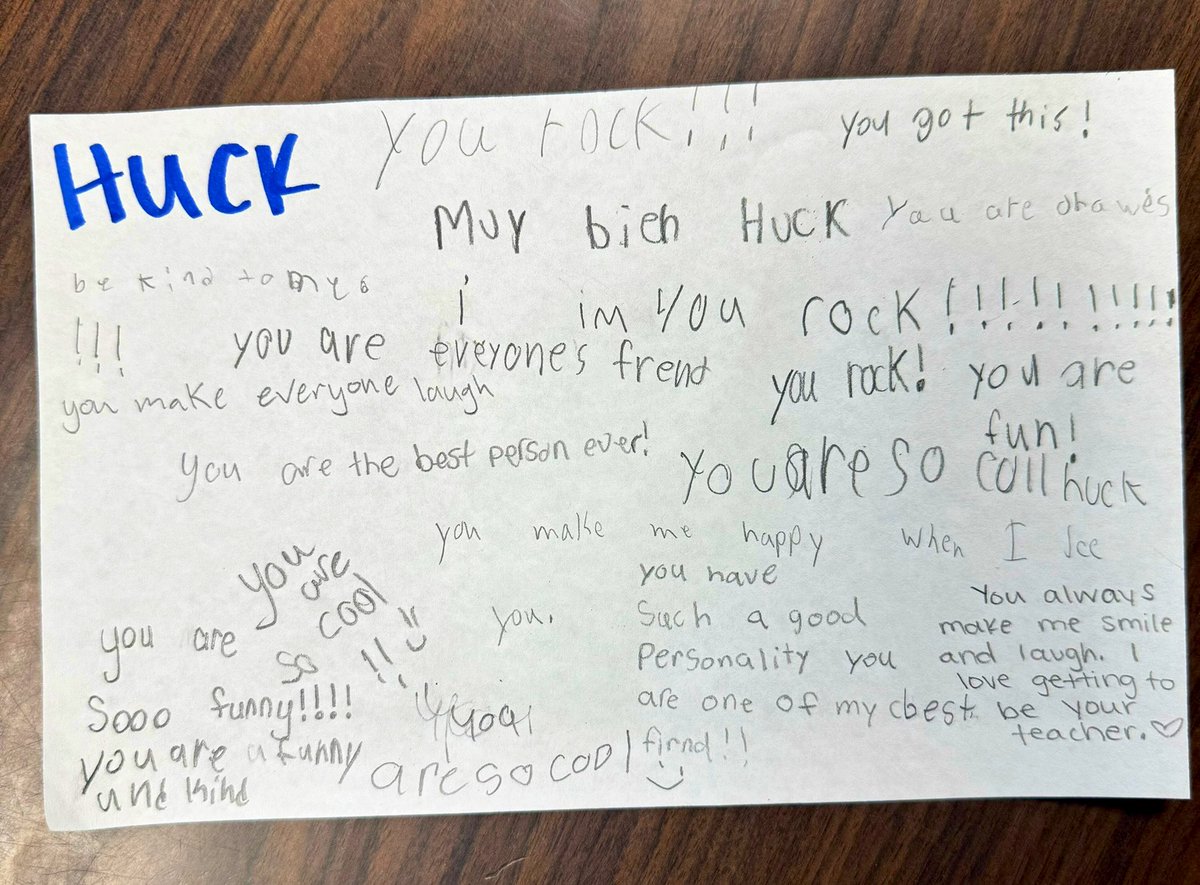 HUCK
you rock!!!
you got this!
Muy bien HUCK
You are
be kind to
!!!
i im you rock!!!!!!!!!!!
you are everyone's frend
you make everyone laugh
you rock! you are
fun!
you are the best person ever!
you are so coll
huck
you make me happy when I see
you.
you are
so cool
!! 
you are
Sooo funny!!!!
you are a funny
and kind
are so cool
you have
Such a good
Personality you
are one of my best
firnd!!
You always
make me smile
and laugh. I
love getting to
be your
teacher.♡